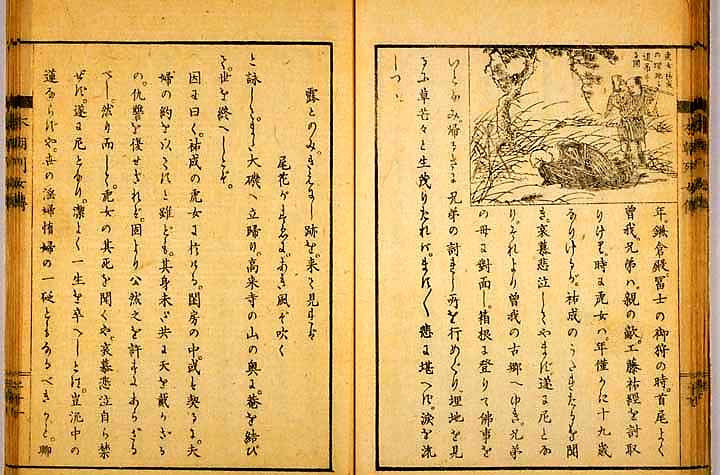 年。鎌倉殿冨士の御狩の時。首尾よく
曾我兄弟ハ。親の敵。工藤祐經を討取
りけり。時に虎女ハ。年僅かに十九歳
なりけるが。祐成のうたれたるを聞
き。哀慕悲泣してやまず。遂に尼とな
り。それより曾我の古郷へゆき。兄弟
の母に對面し。箱根に登りて佛事を
いとなみ歸るさに兄弟の討れし所を行めぐり。埋地を見
るに草茫々と生茂りたれバ。悲に堪へず。涙を流
しつゝ
露とのみ。きえにし跡を。来て見れば
尾花がすゑに。あき風ぞ吹く
と詠じ大磯へ立歸り。高来寺の山の奥に。菴を結び
て。世を終へしとぞ。
因に曰く。祐成の虎女に於ける。閨房の中。或ハ契るに。夫
婦の約を以てせりと雖ども。其身未だ共に天を戴かざる
の。仇讐を復せざれバ。固より公然之を許すにあらざる
べし。然り而して。虎女の其死を聞くや。哀慕悲泣自ら禁
ぜず。遂に尼となり。凜よく一生を卒へしとは。豈泥中の
蓮ならずや。世の淫婦惰婦の一砭ともなるべきかと。聊
本朝列女傳